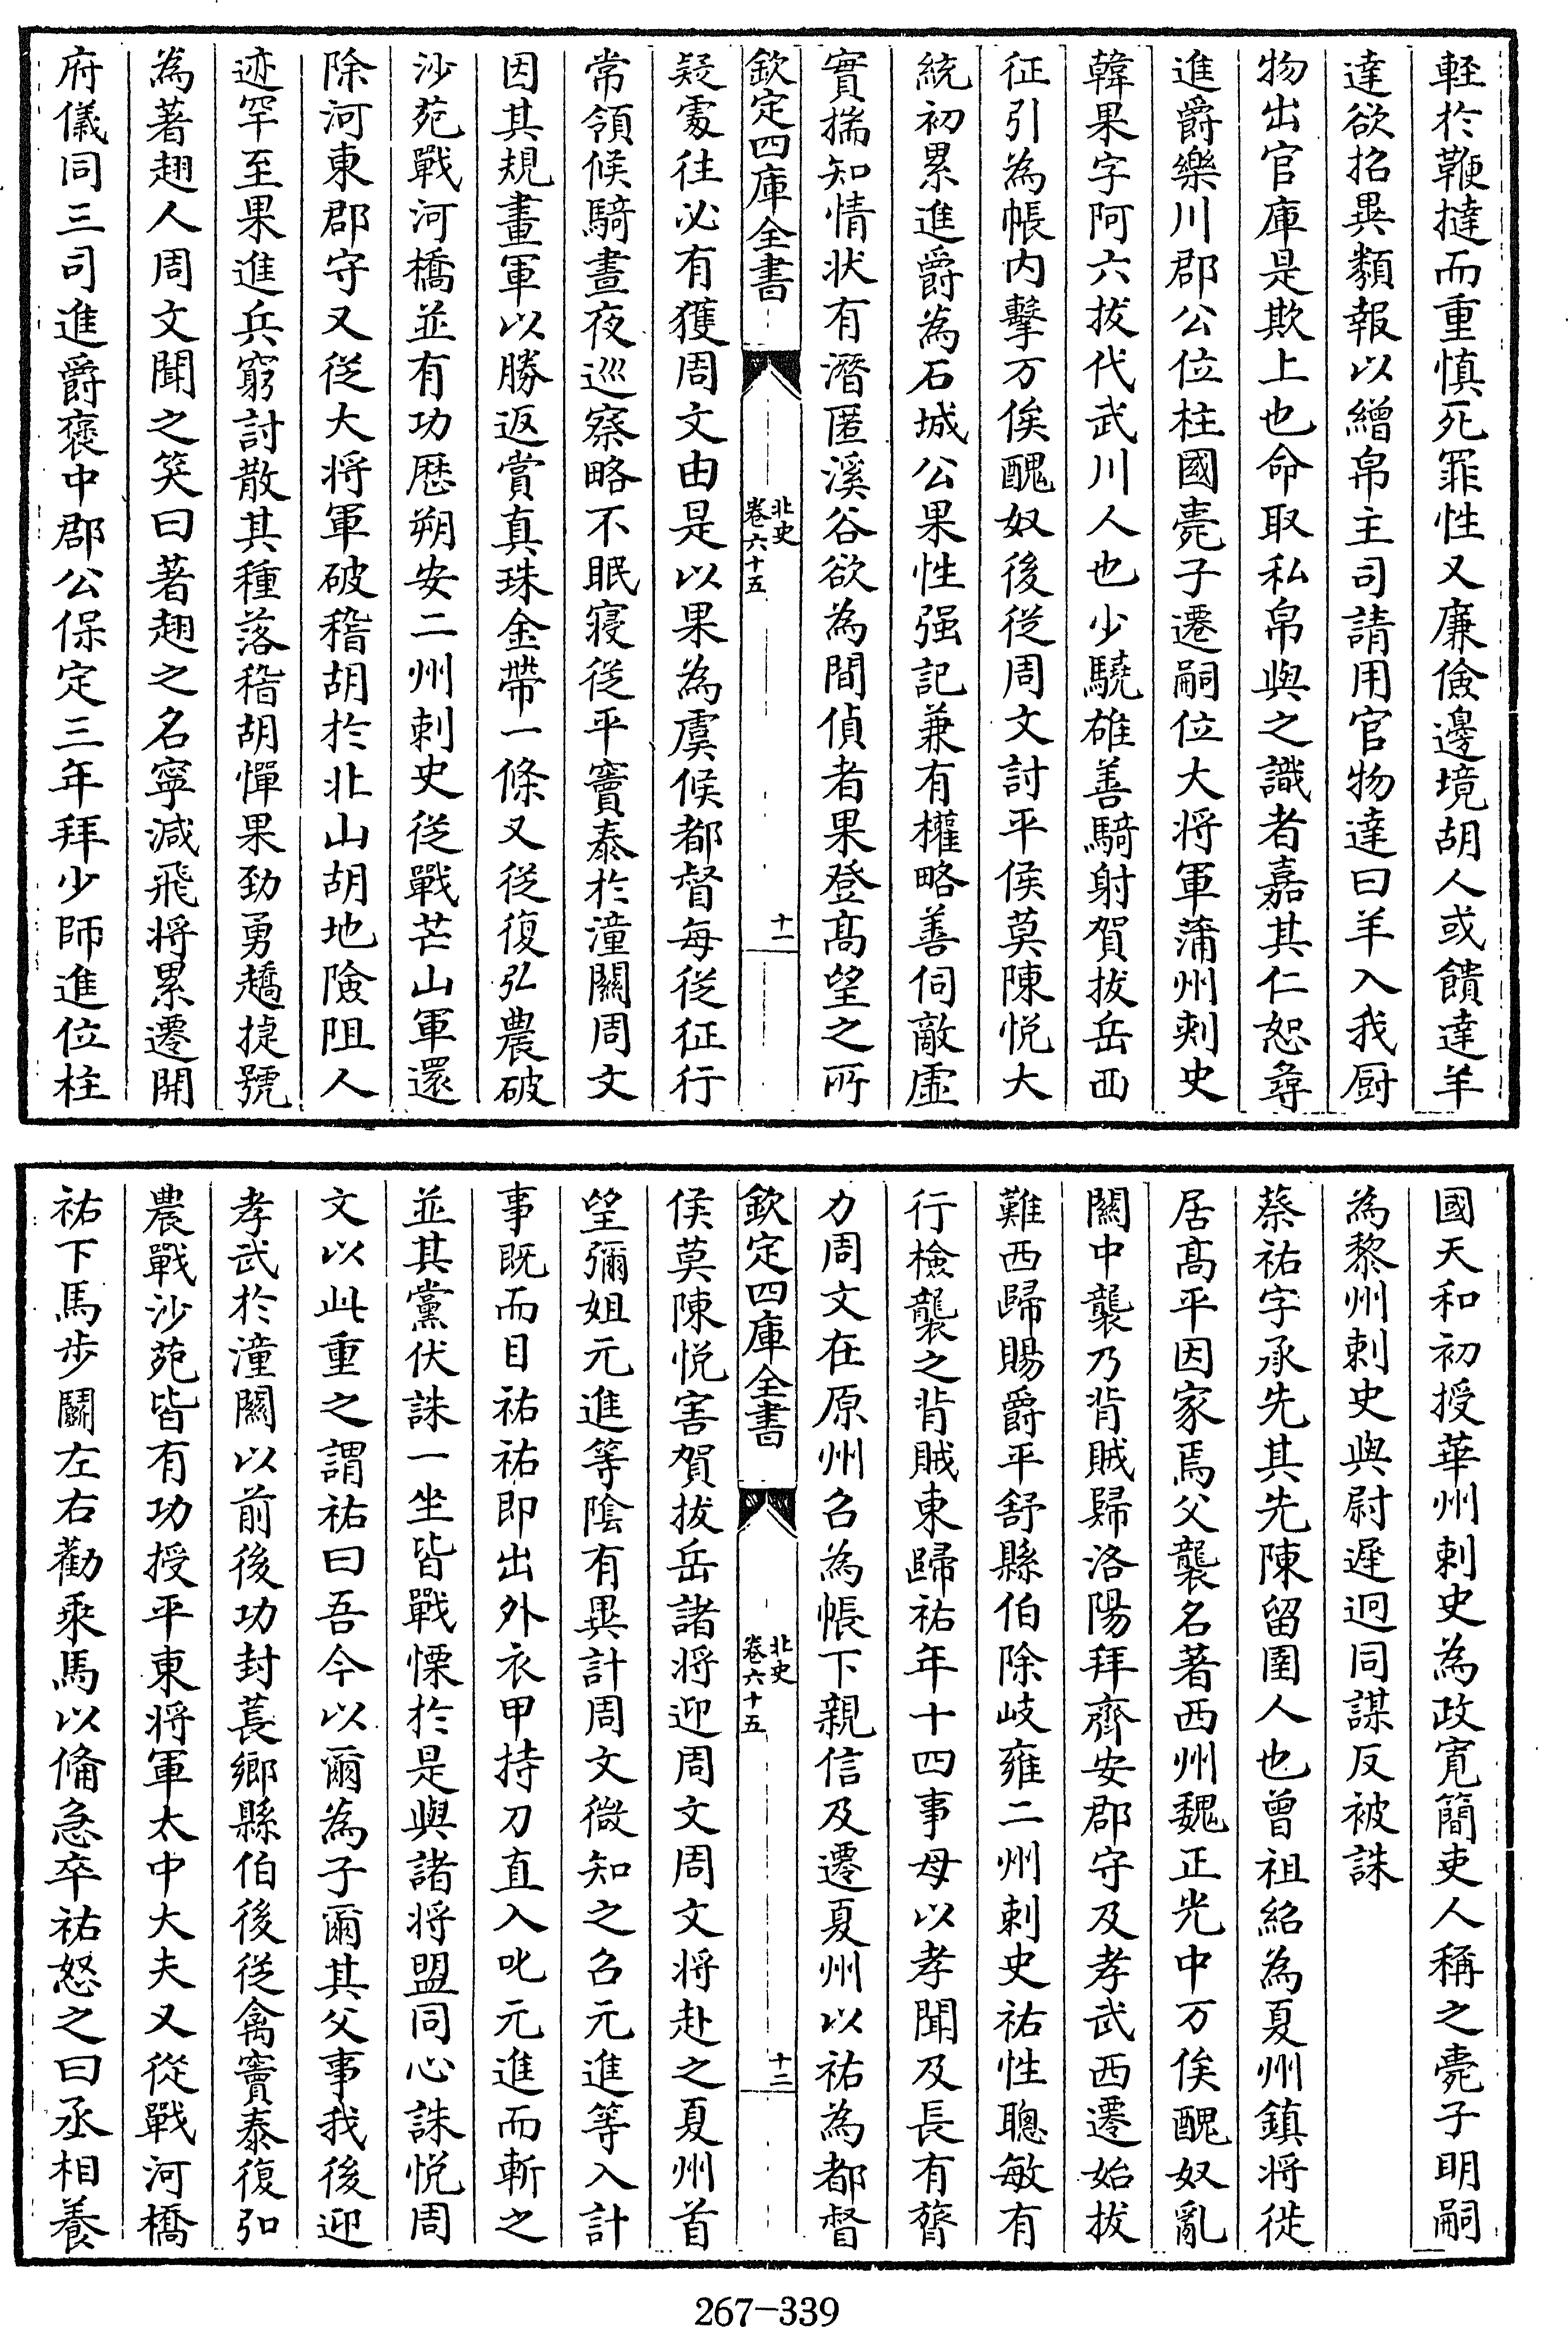 輕於鞭撻而重慎死罪性又廉儉邊境胡人或饋達羊
達欲招異類報以繒帛主司請用官物達曰羊入我厨
物出官庫是欺上也命取私帛與之識者嘉其仁恕尋
進爵樂川郡公位柱國薨子遷嗣位大將軍蒲州刺史
韓果字阿六拔代武川人也少驍雄善騎射賀拔岳西
征引為帳内擊万俟醜奴後從周文討平侯莫陳悦大
統初累進爵為石城公果性强記兼有權略善伺敵虛
實揣知情狀有潛匿溪谷欲為間偵者果登髙望之所
欽定四庫全書
北史
卷六十五
十一
疑處往必有獲周文由是以果為虞候都督每從征行
常領候騎晝夜巡察略不眠寢從平竇泰於潼關周文
因其規畫軍以勝返賞真珠金帶一條又從復弘農破
沙苑戰河橋並有功歴朔安二州刺史從戰芒山軍還
除河東郡守又從大將軍破稽胡於北山胡地險阻人
迹罕至果進兵窮討散其種落稽胡憚果勁勇趫捷號
為著翅人周文聞之笑曰著翅之名寧減飛將累遷開
府儀同三司進爵褒中郡公保定三年拜少師進位柱
國天和初授華州刺史為政寛簡吏人稱之薨子明嗣
為黎州刺史與尉遲迥同謀反被誅
蔡祐字承先其先陳留圉人也曾祖紹為夏州鎮將徙
居髙平因家焉父襲名著西州魏正光中万俟醜奴亂
關中襲乃背賊歸洛陽拜齊安郡守及孝武西遷始拔
難西歸賜爵平舒縣伯除岐雍二州刺史祐性聰敏有
行檢襲之背賊東歸祐年十四事母以孝聞及長有膂
力周文在原州召為帳下親信及遷夏州以祐為都督
欽定四庫全書
北史
卷六十五
十二
侯莫陳悦害賀拔岳諸將迎周文周文將赴之夏州首
望彌姐元進等陰有異計周文微知之召元進等入計
事既而目祐祐即出外衣甲持刀直入叱元進而斬之
並其黨伏誅一坐皆戰慄於是與諸將盟同心誅悦周
文以此重之謂祐曰吾今以爾為子爾其父事我後迎
孝武於潼關以前後功封萇鄉縣伯後從禽竇泰復弘
農戰沙苑皆有功授平東將軍太中大夫又從戰河橋
祐下馬步鬭左右勸乘馬以備急卒祐怒之曰丞相養
267-339